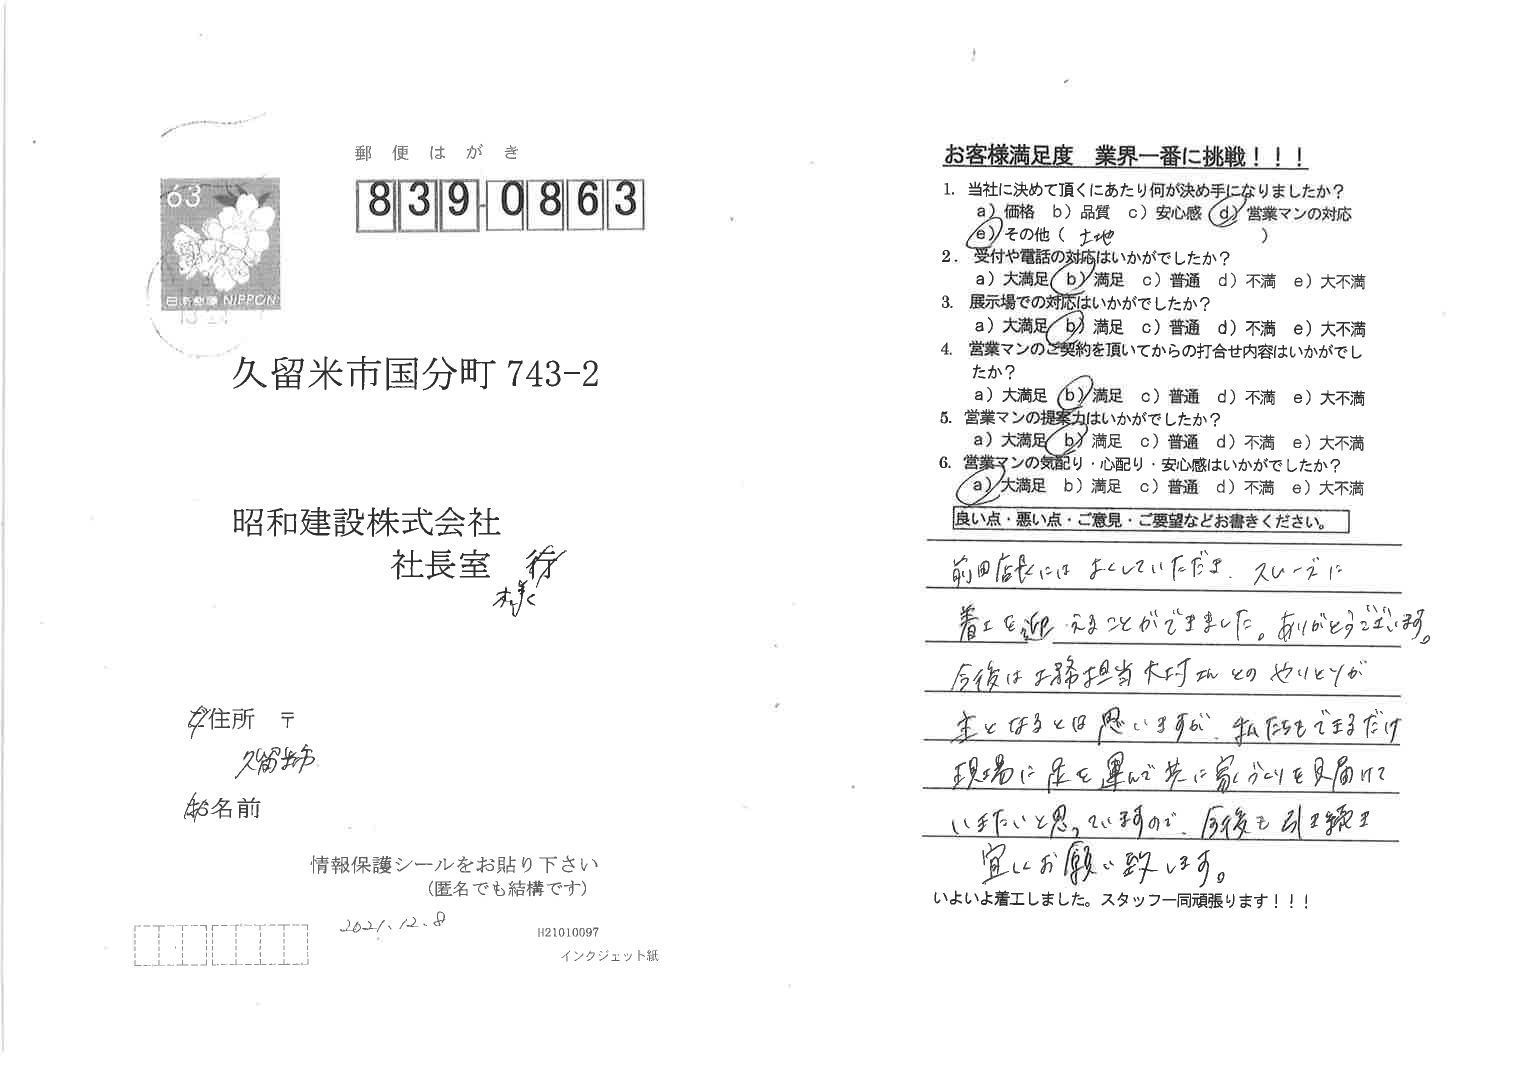 郵便はがき
63
839-0863
日本郵便 NIPPON
久留米市国分町 743-2
昭和建設株式会社
社長室 行
様
ご住所 〒
久留米市
お名前
情報保護シールをお貼り下さい
(匿名でも結構です)
2021.12.8
H21010097
インクジェット紙
お客様満足度 業界一番に挑戦！！！
1. 当社に決めて頂くにあたり何が決め手になりましたか？
a）価格 b）品質 c）安心感 d）営業マンの対応
e）その他（ 土地 ）
2. 受付や電話の対応はいかがでしたか？
a）大満足 b）満足 c）普通 d）不満 e）大不満
3. 展示場での対応はいかがでしたか？
a）大満足 b）満足 c）普通 d）不満 e）大不満
4. 営業マンのご契約を頂いてからの打合せ内容はいかがでし
たか？
a）大満足 b）満足 c）普通 d）不満 e）大不満
5. 営業マンの提案力はいかがでしたか？
a）大満足 b）満足 c）普通 d）不満 e）大不満
6. 営業マンの気配り・心配り・安心感はいかがでしたか？
a）大満足 b）満足 c）普通 d）不満 e）大不満
良い点・悪い点・ご意見・ご要望などお書きください。
前田店長にはよくしていただき、スムーズに
着工を迎えることができました。ありがとうございます。
今後は工務担当木村さんとのやりとりが
主となるとは思いますが、私たちもできるだけ
現場に足を運んで共に家づくりを見届けて
いきたいと思っていますので、今後も引き続き
宜しくお願い致します。
いよいよ着工しました。スタッフ一同頑張ります！！！